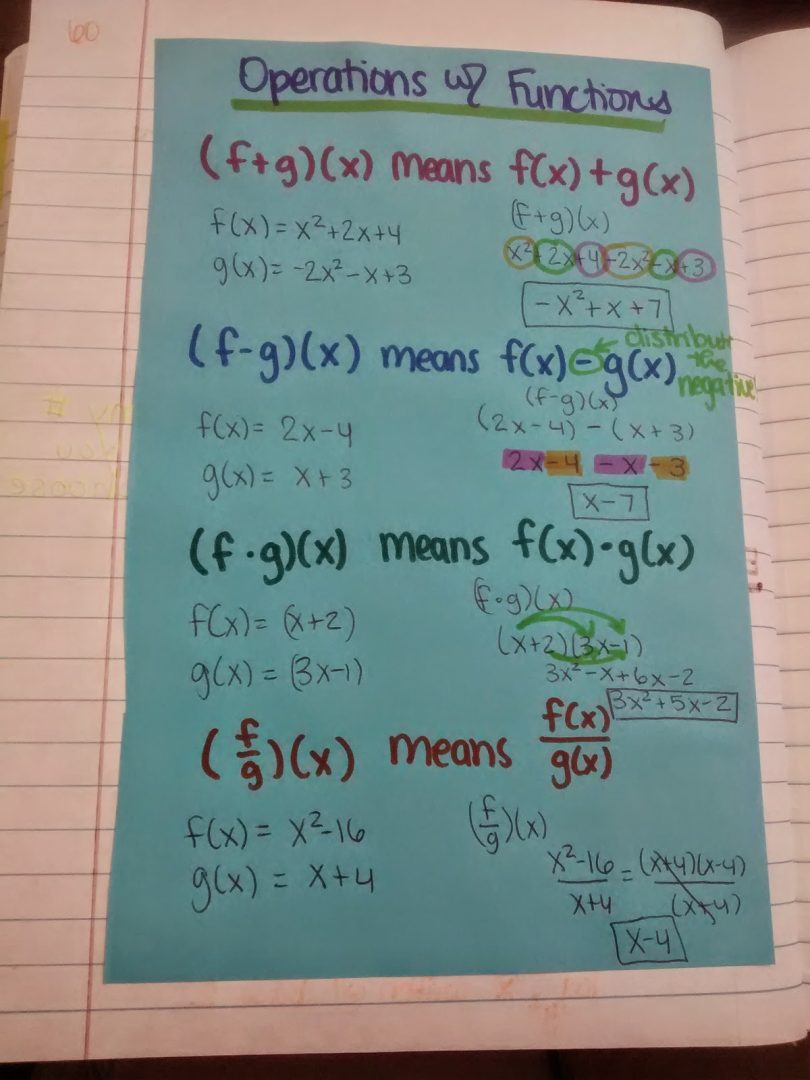 60
Operations w/ Functions
(f+g)(x) means f(x)+g(x)
f(x)=x²+2x+4
g(x)=-2x²-x+3
(f+g)(x)
x²+2x+4-2x²-x+3
-x²+x+7
(f-g)(x) means f(x)-g(x)
distribute the negative!
f(x)= 2x-4
g(x)= x+3
(f-g)(x)
(2x-4)-(x+3)
2x-4 -x-3
x-7
(f·g)(x) means f(x)·g(x)
f(x)=(x+2)
g(x)=(3x-1)
(f·g)(x)
(x+2)(3x-1)
3x²-x+6x-2
3x²+5x-2
(f/g)(x) means f(x)/g(x)
f(x)= x²-16
g(x) = x+4
(f/g)(x)
x²-16/x+4 = (x+4)(x-4)/(x+4)
x-4